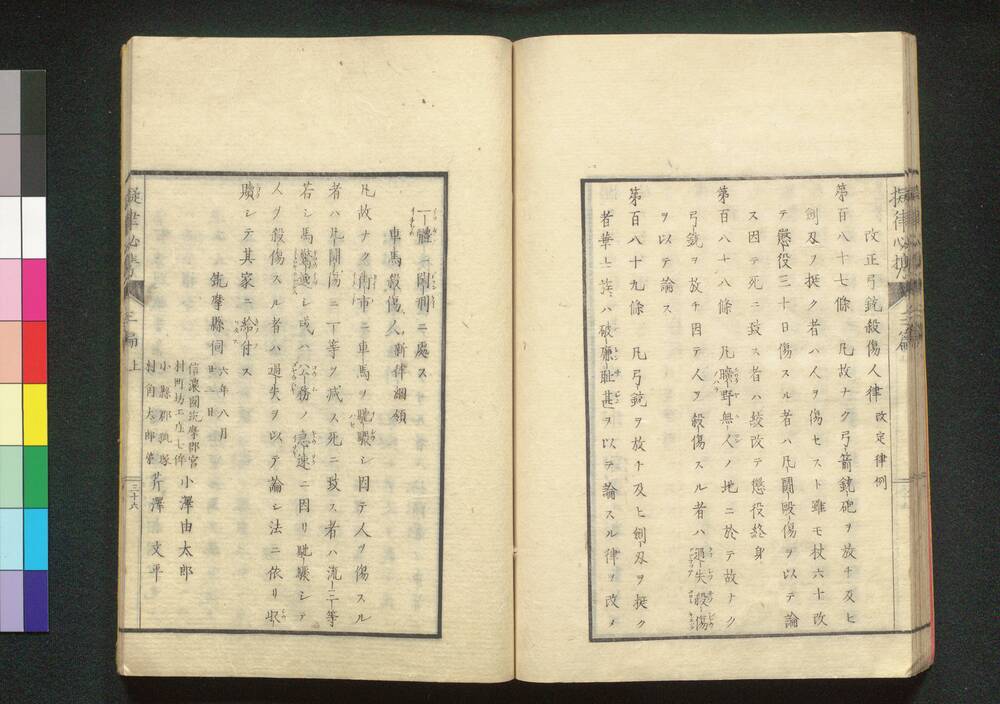 改正弓銃殺傷人律 改定律例
第百八十七條 凡故ナク弓箭銃砲ヲ放チ及ヒ
劍刃ヲ挺ク者ハ人ヲ傷セスト雖モ杖六十改
テ懲役三十日傷スル者ハ凡鬪毆傷ヲ以テ論
ス因テ死ニ致ス者ハ絞改テ懲役終身
第百八十八條 凡曠野無人ノ地ニ於テ故ナク
弓銃ヲ放チ因テ人ヲ殺傷スル者ハ過失殺傷
ヲ以テ論ス
第百八十九條 凡弓銃ヲ放チ及ヒ劍刃ヲ挺ク
者華士族ハ破廉耻甚ヲ以テ論スル律ヲ改メ
三篇
一體ノ閏刑ニ處ス
車馬殺傷人 新律綱領
凡故ナク街市ニ車馬ヲ馳驟シ因テ人ヲ傷スル
者ハ凡鬪傷ニ一等ヲ减ス死ニ致ス者ハ流二等
若シ馬驚逸シ或ハ公務ノ急速ニ因リ馳驟シテ
人ヲ殺傷スル者ハ過失ヲ以テ論シ法ニ依リ收
贖シテ其家ニ給付ス
筑摩縣伺 六年八月
廿二日
信濃國筑摩郡宮
村町坊工庄七倅 小澤由太郎
小縣郡
村角太郎弟 芹澤文平
上
三十六